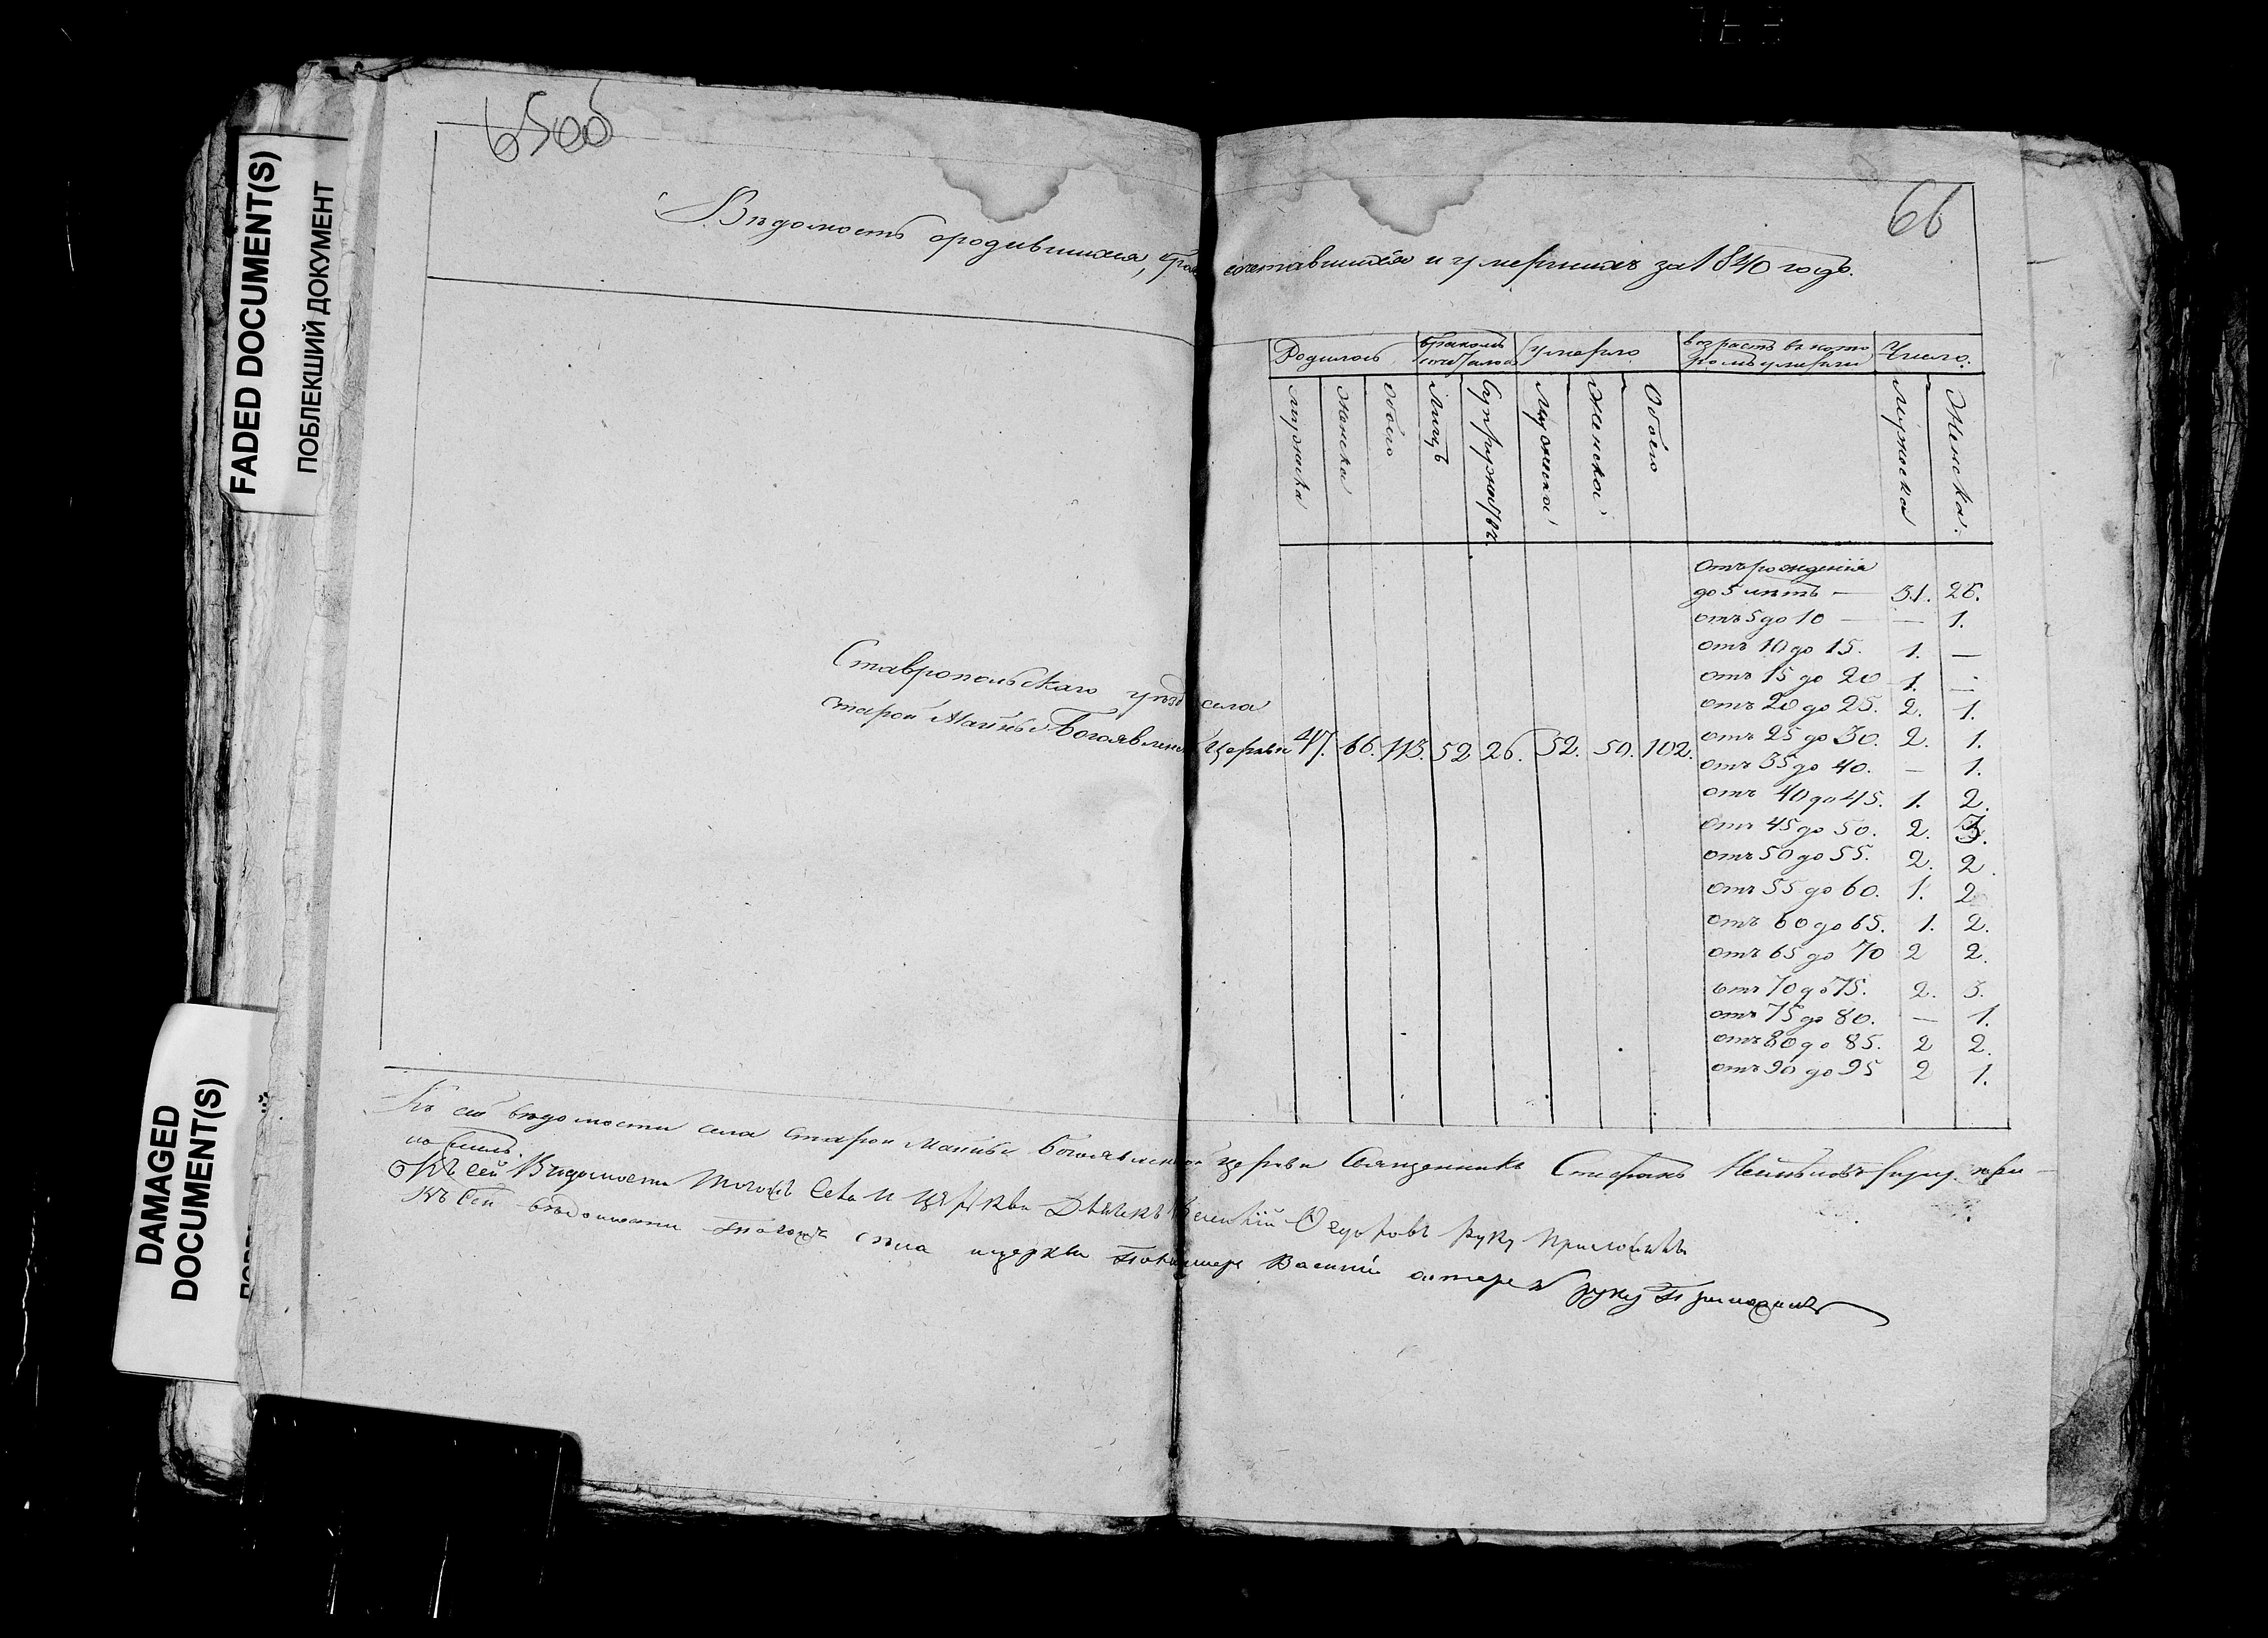 65об
66
Вѣдомость ородившихся, брако сочетавшихся и умершихъ за 1840 годъ.
Родилось
бракомъ сочеталось
умерло
возрастъ въ кото
ромъ умерли
Число.
мужска
женска
обоего
Лицъ
Супружествъ.
Мужеска
Женска
Обоего
Мужеска
Женска.
отъ рожденія
до 5 лѣтъ — 31. 26.
отъ 5 до 10 — — 1.
отъ 10 до 15. 1. —
отъ 15 до 20 1. —
отъ 20 до 25. 2. 1.
отъ 25 до 30. 2. 1.
отъ 35 до 40. — 1.
отъ 40 до 45. 1. 2.
отъ 45 до 50. 2. 3.
отъ 50 до 55. 2. 2.
отъ 55 до 60. 1. 2
отъ 60 до 65. 1. 2.
отъ 65 до 70 2 2.
отъ 70 до 75. 2. 3.
отъ 75 до 80. — 1.
отъ 80 до 85. 2 2.
отъ 90 до 95 2 1.
Ставропольскаго уѣзд села
Старой Майны Богоявленс Церкви 47. 66. 113. 52 26. 52. 50. 102.
Къ сей вѣдомости села Старой Майны Богоявленской церкви Священникъ Стефанъ руку при-
ложилъ.
Къ сей Вѣдомости тогожъ Села и церкви Дьячекъ Федоровъ руку приложилъ
Къ сей вѣдомости тогожъ села и церкви Пономарь Василий руку приложилъ
FADED DOCUMENT(S)
ПОБЛЕКШИЙ ДОКУМЕНТ
DAMAGED
DOCUMENT(S)